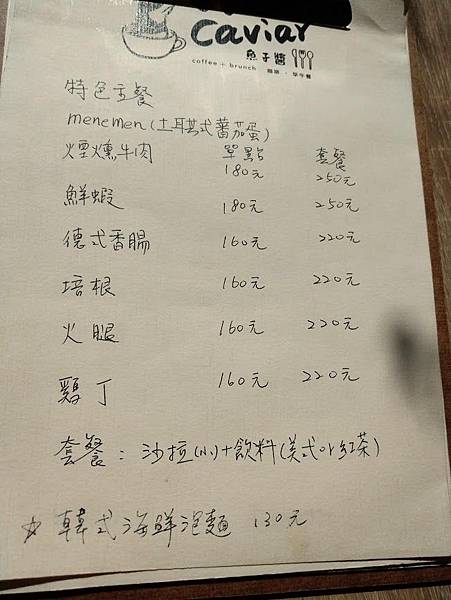 Caviar
魚子醬
coffee + brunch 咖啡 · 早午餐
特色主餐
menemen(土耳其式蕃茄蛋)
單點 套餐
煙燻牛肉 180元 250元
鮮蝦 180元 250元
德式香腸 160元 220元
培根 160元 220元
火腿 160元 220元
雞丁 160元 220元
套餐：沙拉(小)+飲料(美式or紅茶)
☆ 韓式海鮮泡麵 130元